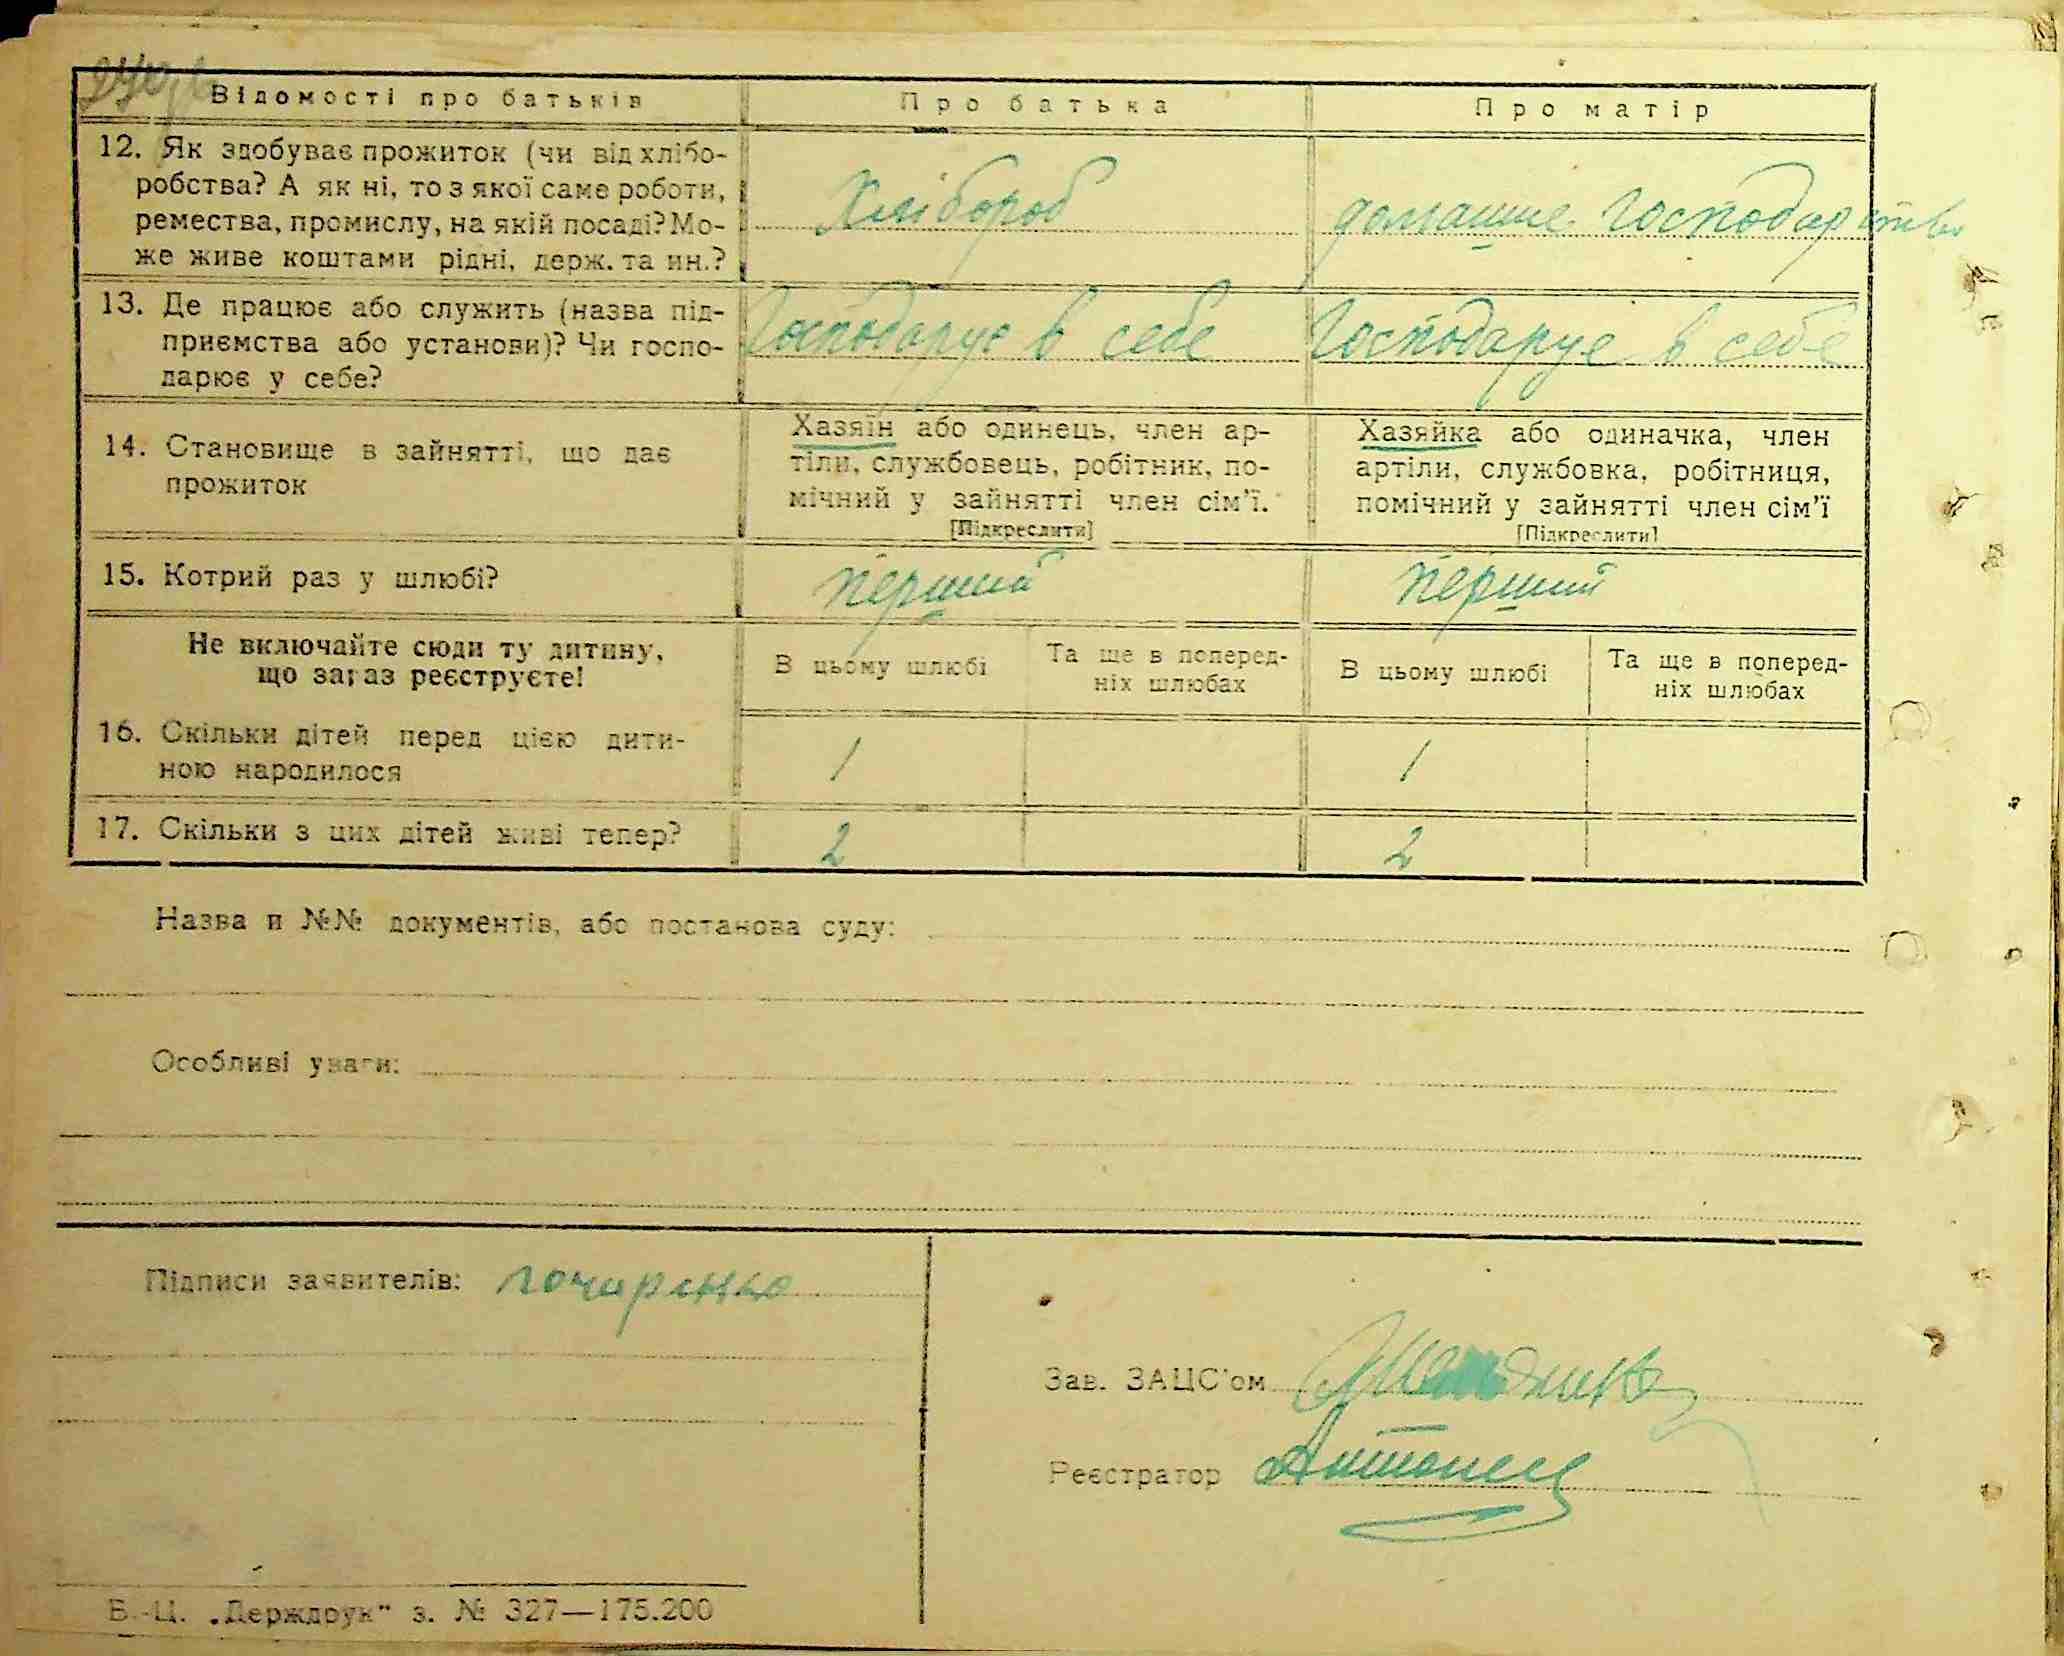 Відомості про батьків
Про батька
Про матір
12. Як здобуває прожиток (чи від хлібо-
робства? А як ні, то з якої саме роботи,
ремества, промислу, на якій посаді? Мо-
же живе коштами рідні, держ. та ин.?
Хлібороб
домашнє господарство
13. Де працює або служить (назва під-
приємства або установи)? Чи госпо-
дарює у себе?
Господарує в себе
Господарує в себе
14. Становище в зайнятті, що дає
прожиток
Хазяїн або одинець, член ар-
тіли, службовець, робітник, по-
мічний у зайнятті член сім'ї.
[Підкреслити]
Хазяйка або одиначка, член
артіли, службовка, робітниця,
помічний у зайнятті член сім'ї
[Підкреслити]
15. Котрий раз у шлюбі?
перший
перший
Не включайте сюди ту дитину,
що зараз реєструєте!
В цьому шлюбі
Та ще в поперед-
ніх шлюбах
В цьому шлюбі
Та ще в поперед-
ніх шлюбах
16. Скільки дітей перед цією дити-
ною народилося
1
1
17. Скільки з цих дітей живі тепер?
2
2
Назва и №№ документів, або постанова суду:
Особливі уваги:
Підписи заявителів:
Зав. ЗАЦС'ом
Реєстратор Антонец
Б.-Ц. „Держдрук" з. № 327—175.200